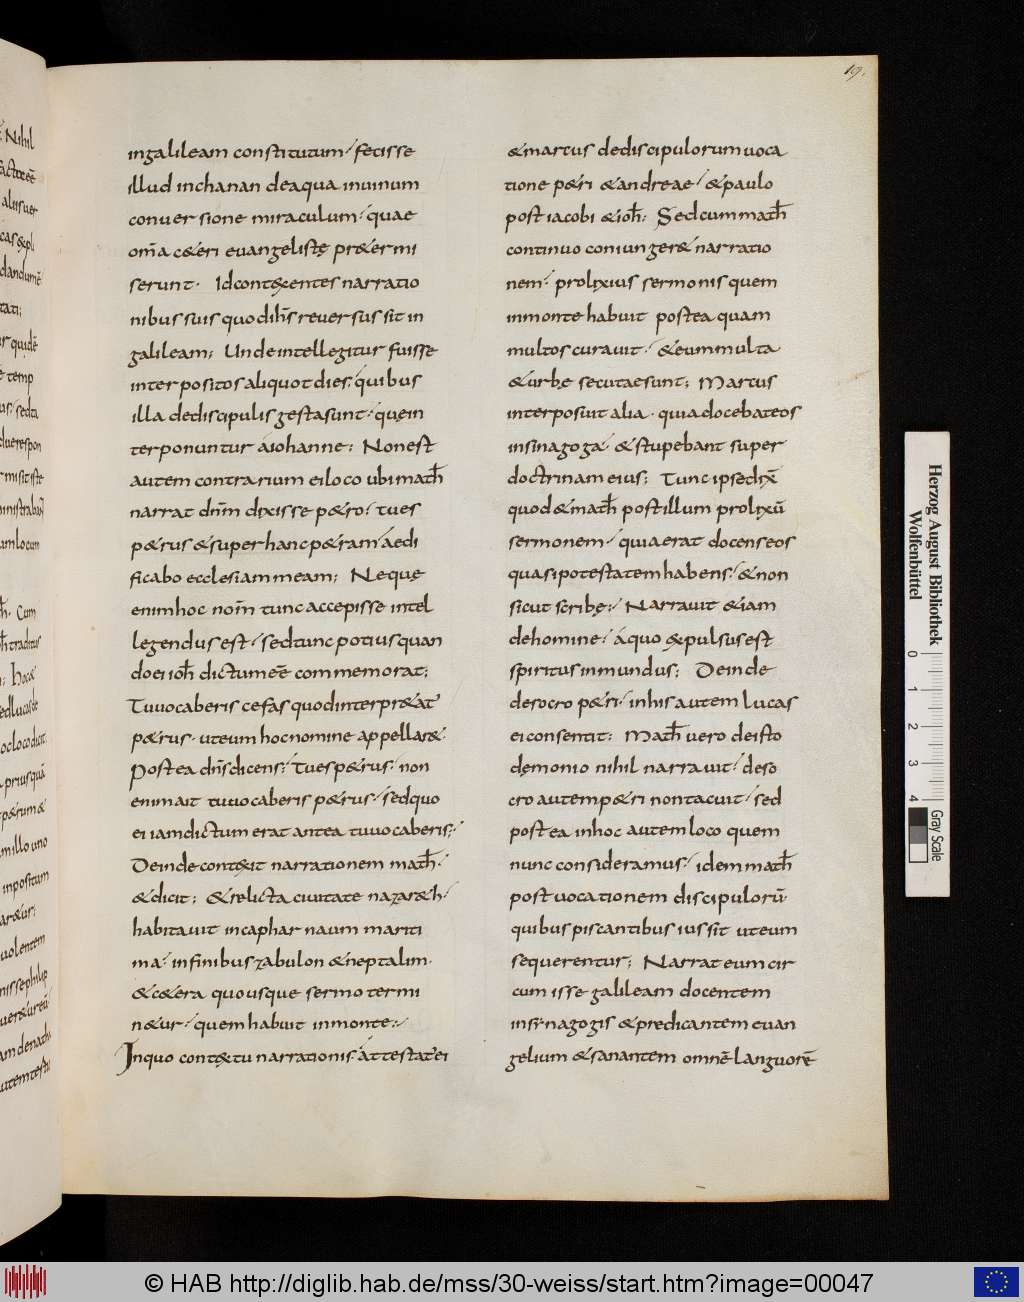 19.
ingalileam constitutum; fecisse
illud inchanan deaqua inuinum
conuersione miraculum; quae
om̄a c&eri euangelistę pr&ermi
serunt. Idcontęxentes narratio
nibus suis quodih̄s reuersus sit in
galileam; Undeintellegitur fuisse
interpositos aliquot dies; quibus
illa dediscipulis gestasunt; quęin
terponuntur áiohanne; Nonest
autem contrarium eiloco ubimath̄
narrat dn̄m dixisse p&ro; tues
p&rus &superhancp&ram aedi
ficabo ecclesiammeam; Neque
enimhoc nom̄ tunc accepisse intel
legendusest; sedtunc potiusquan
doei ioh̄ dictumeē commemorat;
Tuuocaberis cefas quodinterpr&at̄
p&rus. uteum hocnomine appellar&.
Postea dn̄sdicens; Tuesp&rus; non
enimait tuuocaberis p&rus; sedquo
ei iamdictum erat antea tuuocaberis;
Deinde cont&xit narrationem math̄.
&dicit; &relicta ciuitate nazar&h;
habitauit incapharnaum mariti
ma; infinibus zabulon &neptalim.
&c&era quousque sermo termi
n&ur; quemhabuit inmonte;
Inquo contextu narrationis áttestat̄ei
&marcus dediscipulorumuoca
tione p&ri &andreae; &paulo
post iacobi &ioh̄; Sedcum math̄
continuo coniunger& narratio
nem; prolixius sermonis quem
inmonte habuit postea quam
multos curauit; &eummulta
&urbę secutaesunt; Marcus
interposuit alia. quia docebateos
insinagoga; &stupebant super
doctrinam eius; Tunc ipsedix̄
quod&math̄ postillum prolixū
sermonem; quiaerat docenseos
quasipotestatemhabens; &non
sicut scribę; Narrauit &iam
dehomine; áquo expulsusest
spiritus inmundus; Deinde
desocro p&ri; inhis autem lucas
ei consentit; Math̄ uero deisto
dęmonio nihil narrauit; deso
cro autemp&ri nontacuit; sed
postea inhoc autem loco quem
nunc consideramus; idem math̄
post uocationem discipulorū
quibus piscantibus iussit uteum
sequerentur; Narrat eum cir
cum isse galileam docentem
insynagogis &predicantem euan
gelium &sanantem omnē languorē
Nihil
Herzog August Bibliothek
Wolfenbüttel
0 1 2 3 4
Gray Scale
© HAB http://diglib.hab.de/mss/30-weiss/start.htm?image=00047